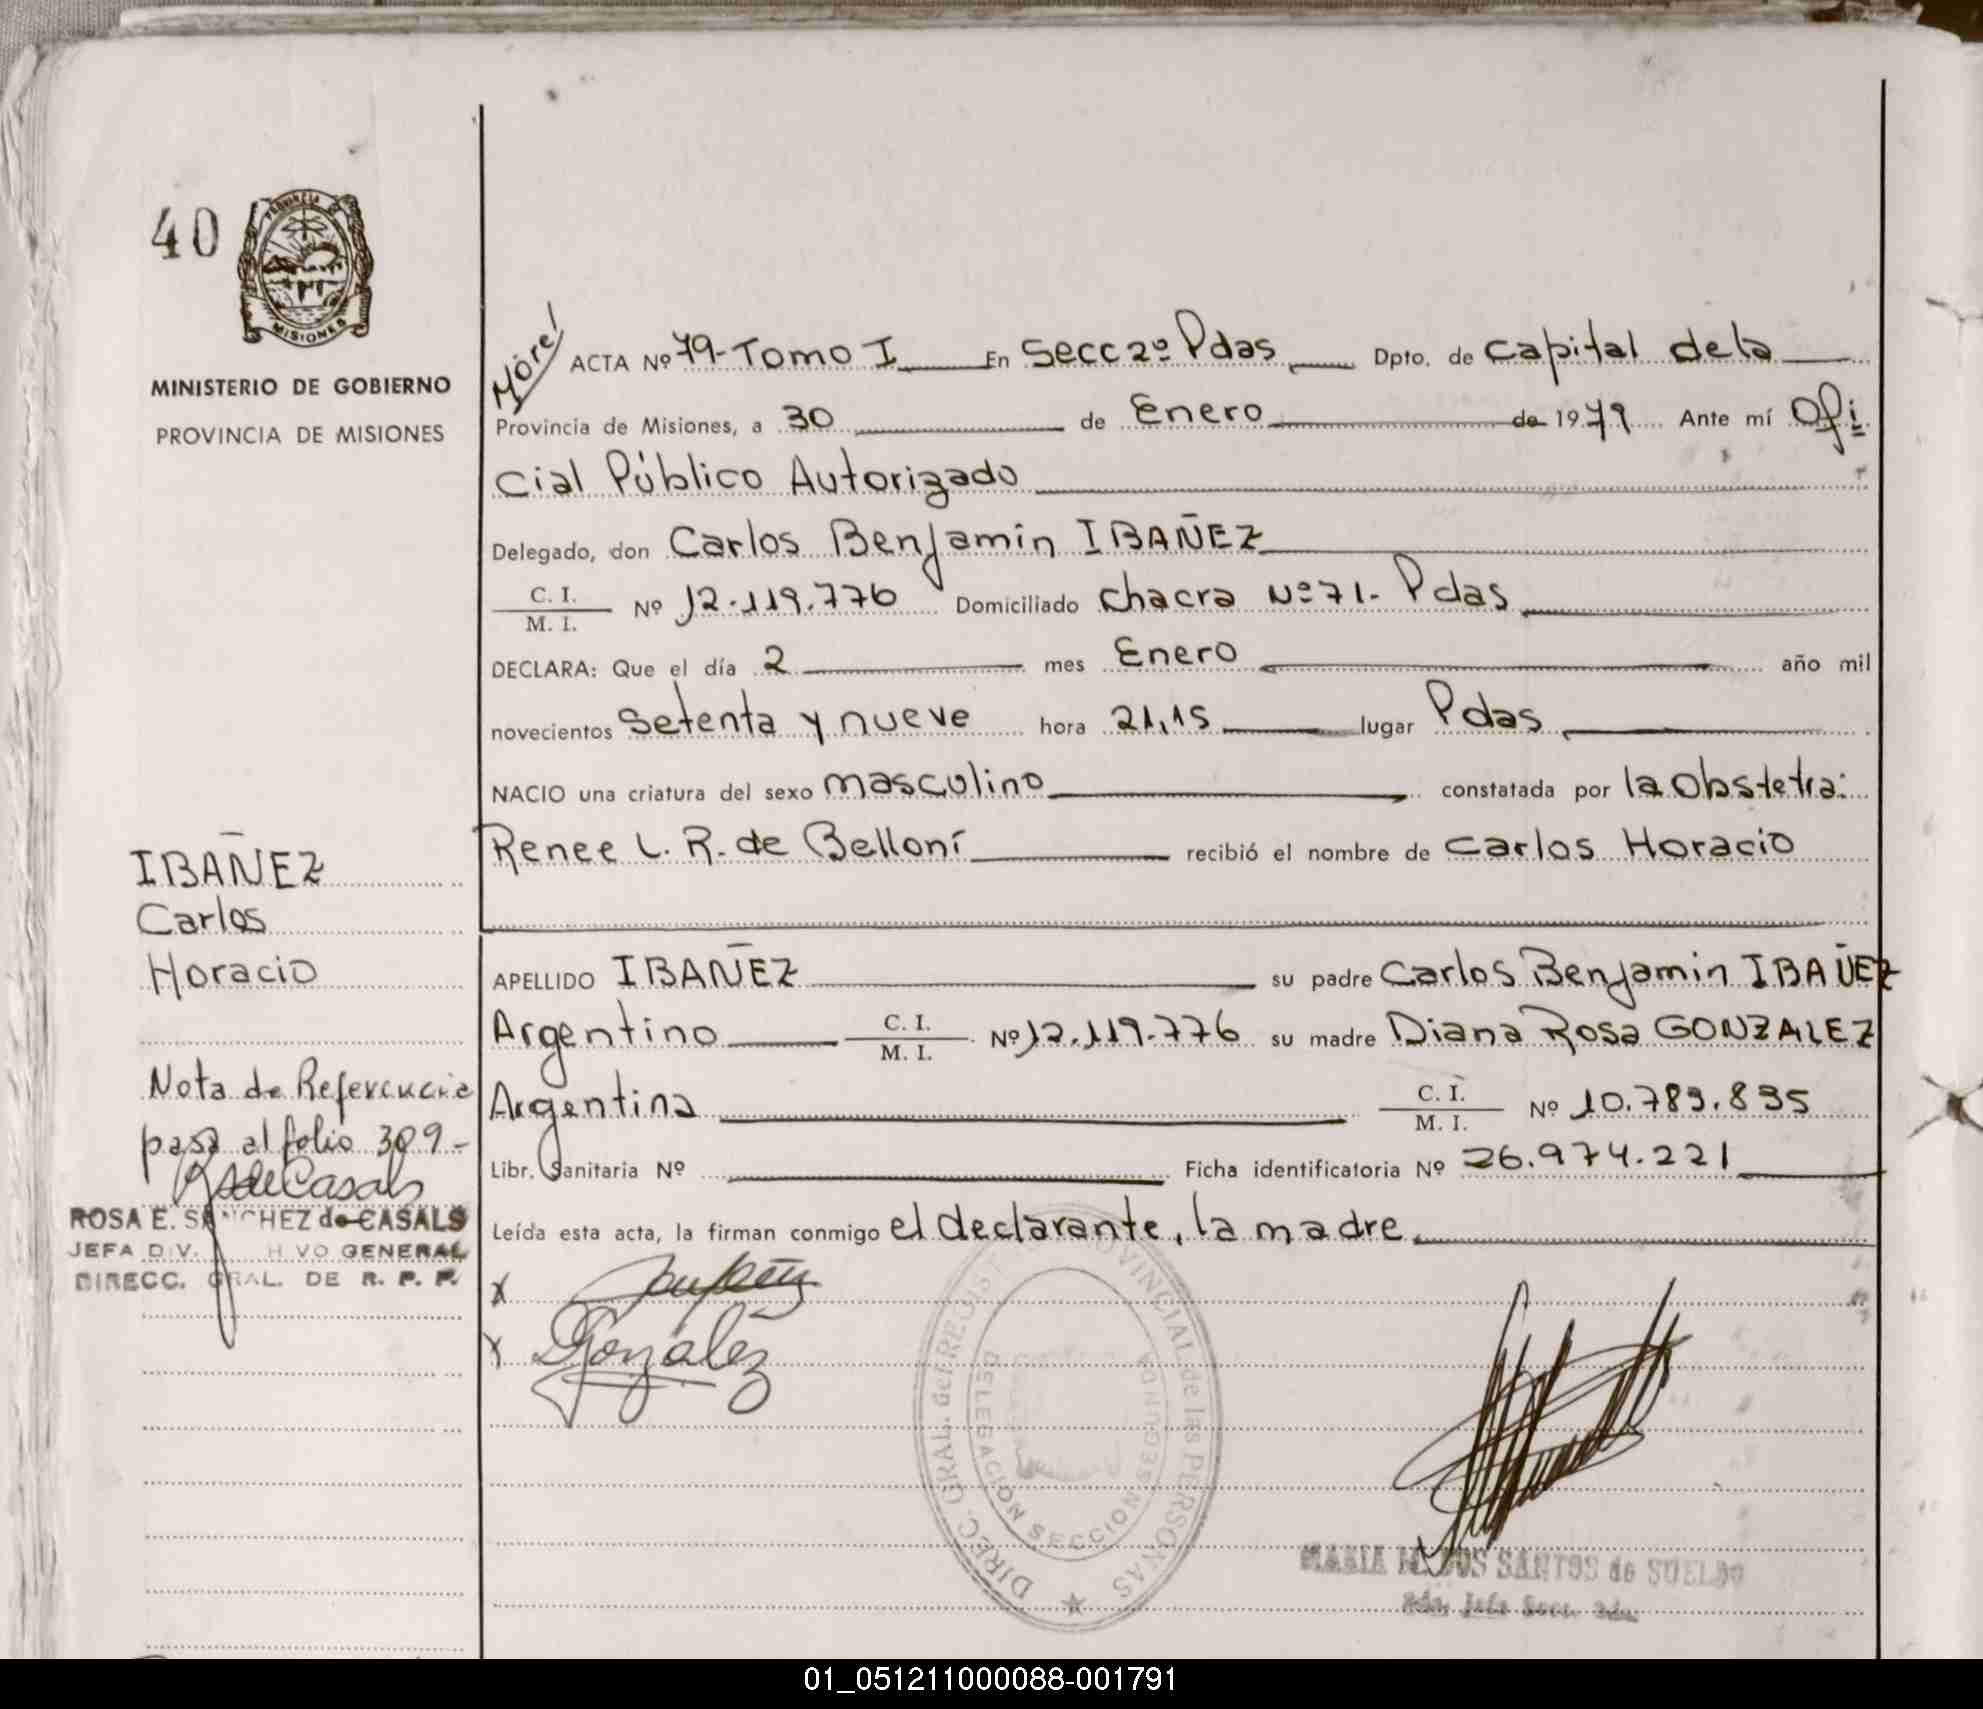 40
PROVINCIA DE
MISIONES
MINISTERIO DE GOBIERNO
PROVINCIA DE MISIONES
ACTA Nº 79-Tomo I En Secc 2º Pdas Dpto. de Capital de la
Provincia de Misiones, a 30 de Enero de 1979 Ante mí Ofi
cial Público Autorizado
Delegado, don Carlos Benjamin IBAÑEZ
C. I.
M. I. Nº 12.119.776 Domiciliado Chacra Nº 71- Pdas
DECLARA: Que el día 2 mes Enero año mil
novecientos Setenta y nueve hora 21,15 lugar Pdas
NACIO una criatura del sexo masculino constatada por la Obstetra:
Renee L. R. de Belloni recibió el nombre de Carlos Horacio
IBAÑEZ
Carlos
Horacio
APELLIDO IBAÑEZ su padre Carlos Benjamin IBAÑEZ
Argentino C. I. M. I. Nº 12.119.776 su madre Diana Rosa GONZALEZ
Argentina C. I. M. I. Nº 10.783.835
Libr. Sanitaria Nº Ficha identificatoria Nº 26.974.221
Leída esta acta, la firman conmigo el declarante, la madre
Nota de Referencia
pasa al folio 309.-
RSdeCasals
ROSA E. SANCHEZ de CASALS
JEFA DIV. GENERAL
DIRECC. GRAL. DE R. P. P.
X
X Gonzalez
DIREC. GRAL. del REGIST PROVINCIAL de las PERSONAS
DELEGACION SECCION SEGUNDA
MARIA M. DOS SANTOS de SUELDO
01_051211000088-001791